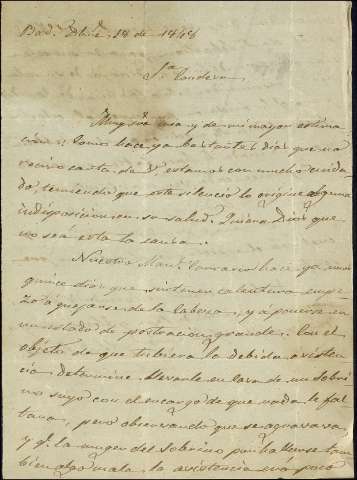 Bad.z Dbre. 18 de 1848
S.ra Condesa
Muy Sra mia y de mi mayor estima
cion: Como hace ya bastantes dias que no
recivo carta de V. estamos con mucho cuida
do, temiendo que este silencio lo origine alguna
indisposicion en su salud. Quiera Dios que
no sea esta la causa.
Nuestro hace ya unos
quince dias que sin tener calentura empe
zó a quejarse de la cabeza, y a ponerse en
un estado de postracion grande. Con el
objeto de que tubiera la debida asisten
cia determiné llevarle su casa de un sobri
no suyo con el encargo de que nada le fal
tara, pero observando que se agravava
y q.e la muger del sobrino tam
bien algo mala, la asistencia era poco